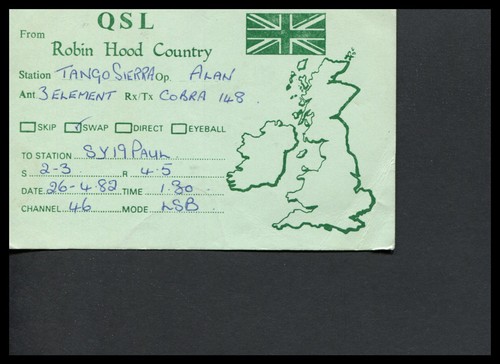 QSL
From
Robin Hood Country
Station TANGO SIERRA Op. ALAN
Ant. 3 ELEMENT Rx/Tx COBRA 148
SKIP SWAP DIRECT EYEBALL
TO STATION SY19 PAUL
S 2-3 R 4-5
DATE 26-4-82 TIME 1.30
CHANNEL 46 MODE LSB